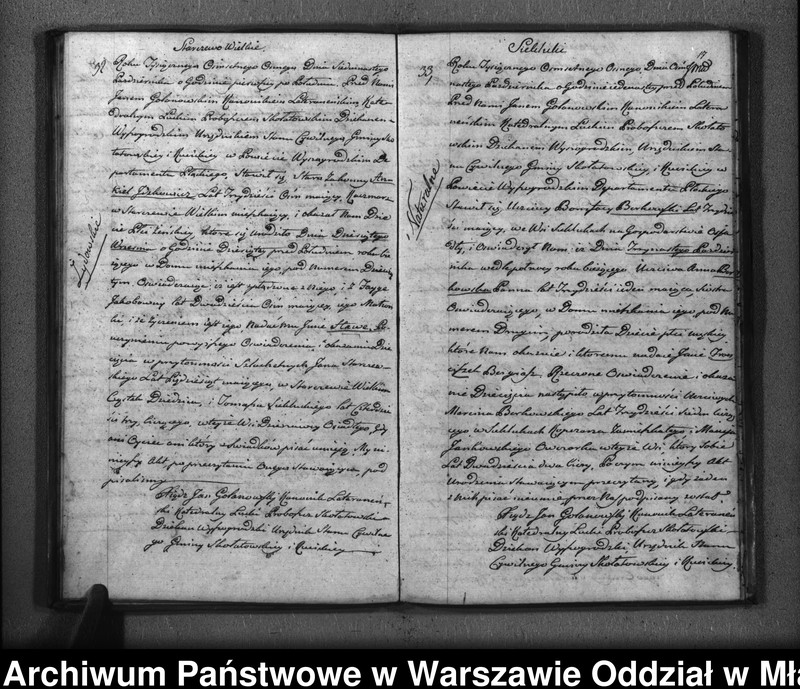 Starzewo Wielkie
32. Roku Tysiącznego Osmsetnego Osmego Dnia Siedmnastego
Pazdziernika o Godzinie pierwszey po Południu. Przed Nami
Janem Golanowskim Kanonikiem Lateranenskim Kate-
dralnym Luckim Proboszczem Skołatowskim Dziekanem
Wyszogrodzkim Urzędnikiem Stanu Cywilnego Gminy Sko
łatowskiey i w Powiecie Wyszogrodzkim De
partamencie Płockim Stawił się Starozakonny
Lat Trzydzieści Osm maiący
w Starzewie Wielkim mieszkaiący, i okazał Nam Dzie
cie Płci które się urodziło Dnia Dziesiątego
o Godzinie Dziesiątey przed Południem roku bie
żącego w Domu mieszkania iego, pod Numerem
tym Oświadczaiąc iż iest spłodzone z Niego, i z
Jakobowny lat Dwadziescia Osm maiącey, iego Małżon
ki, i że życzeniem iest iego Nadać Mu Jmie
uczynieniu powyższego Oświadczenia i okazaniu Dzie
cięcia w przytomności Szlachetnych Jana Starzew-
skiego Lat maiącego, w Starzewie Wielkim
Cząstek Dziedzica, i Tomasza lat
liczącego, wteyże Wsi Osiadłego, Gdy
ani Oyciec ani ktory z swiadków pisać umieją, My ni
nieyszy Akt, po przeczytaniu Onego Stawaiącym, pod
pisalismy
Xiądz Jan Golanowski Kanonik Lateranen
ski Katedralny Lucki Proboszcz Skołatowski
Dziekan Wyszogrodzki Urzędnik Stanu Cywilne
go Gminy Skołatowskiey i
Żydowskie
17
33. Roku Tysiącznego Osmsetnego Osmego, Dnia
nastego Pazdziernika o Godzinie iedenastey przed Południem
Przed Nami Janem Golanowskim Kanonikiem Latera
nenskim Katedralnym Luckim Proboszczem Skołato
wskim Dziekanem Wyszogrodzkim Urzędnikiem Sta-
nu Cywilnego Gminy Skołatowskiey i w
Powiecie Wyszogrodzkim Departamencie Płockim
Stawił się Uczciwy Bonifacy Borkowski Lat Trzydzie
ści maiący, we Wsi na Gospodarstwie Osia
dły, i Oświadczył Nam, iż Dnia Trzynastego Pazdzier
nika roku bieżącego, Uczciwa Anna Bor
kowska Panna lat Trzydzieści ieden maiąca Siostra
Oświadczaiącego, w Domu mieszkania iego pod Nu
merem Drugim, porodziła Dziecie płci męskiey
które Nam okazuie i ktoremu nadaie Jmie Fran
ciszek Rzeczone Oświadczenie i okaza
nie Dziecięcia nastąpiło w przytomności Uczciwych
Marcina Borkowskiego Lat Trzydzieści Siedm liczą
cego w zamieszkałego i
Jankowskiego Owczarka wteyże Wsi, ktory Sobie
Lat Dwadzieścia dwa liczy, Poczym ninieyszy Akt
Urodzenia Stawaiącym przeczytany, i gdy żaden
z Nich pisać nieumie, przez Nas podpisany został
Xiądz Jan Golanowski Kanonik Lateranen
ski Katedralny Lucki Proboszcz Skołatowski
Dziekan Wyszogrodzki, Urzędnik Stanu
Cywilnego Gminy Skołatowskiey i
Naturalne
Archiwum Państwowe w Warszawie Oddział w Mła